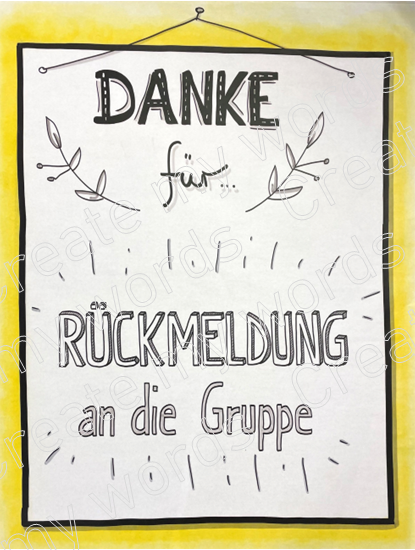 DANKE
für...
RÜCKMELDUNG
an die Gruppe
create my words
create my words
create my words